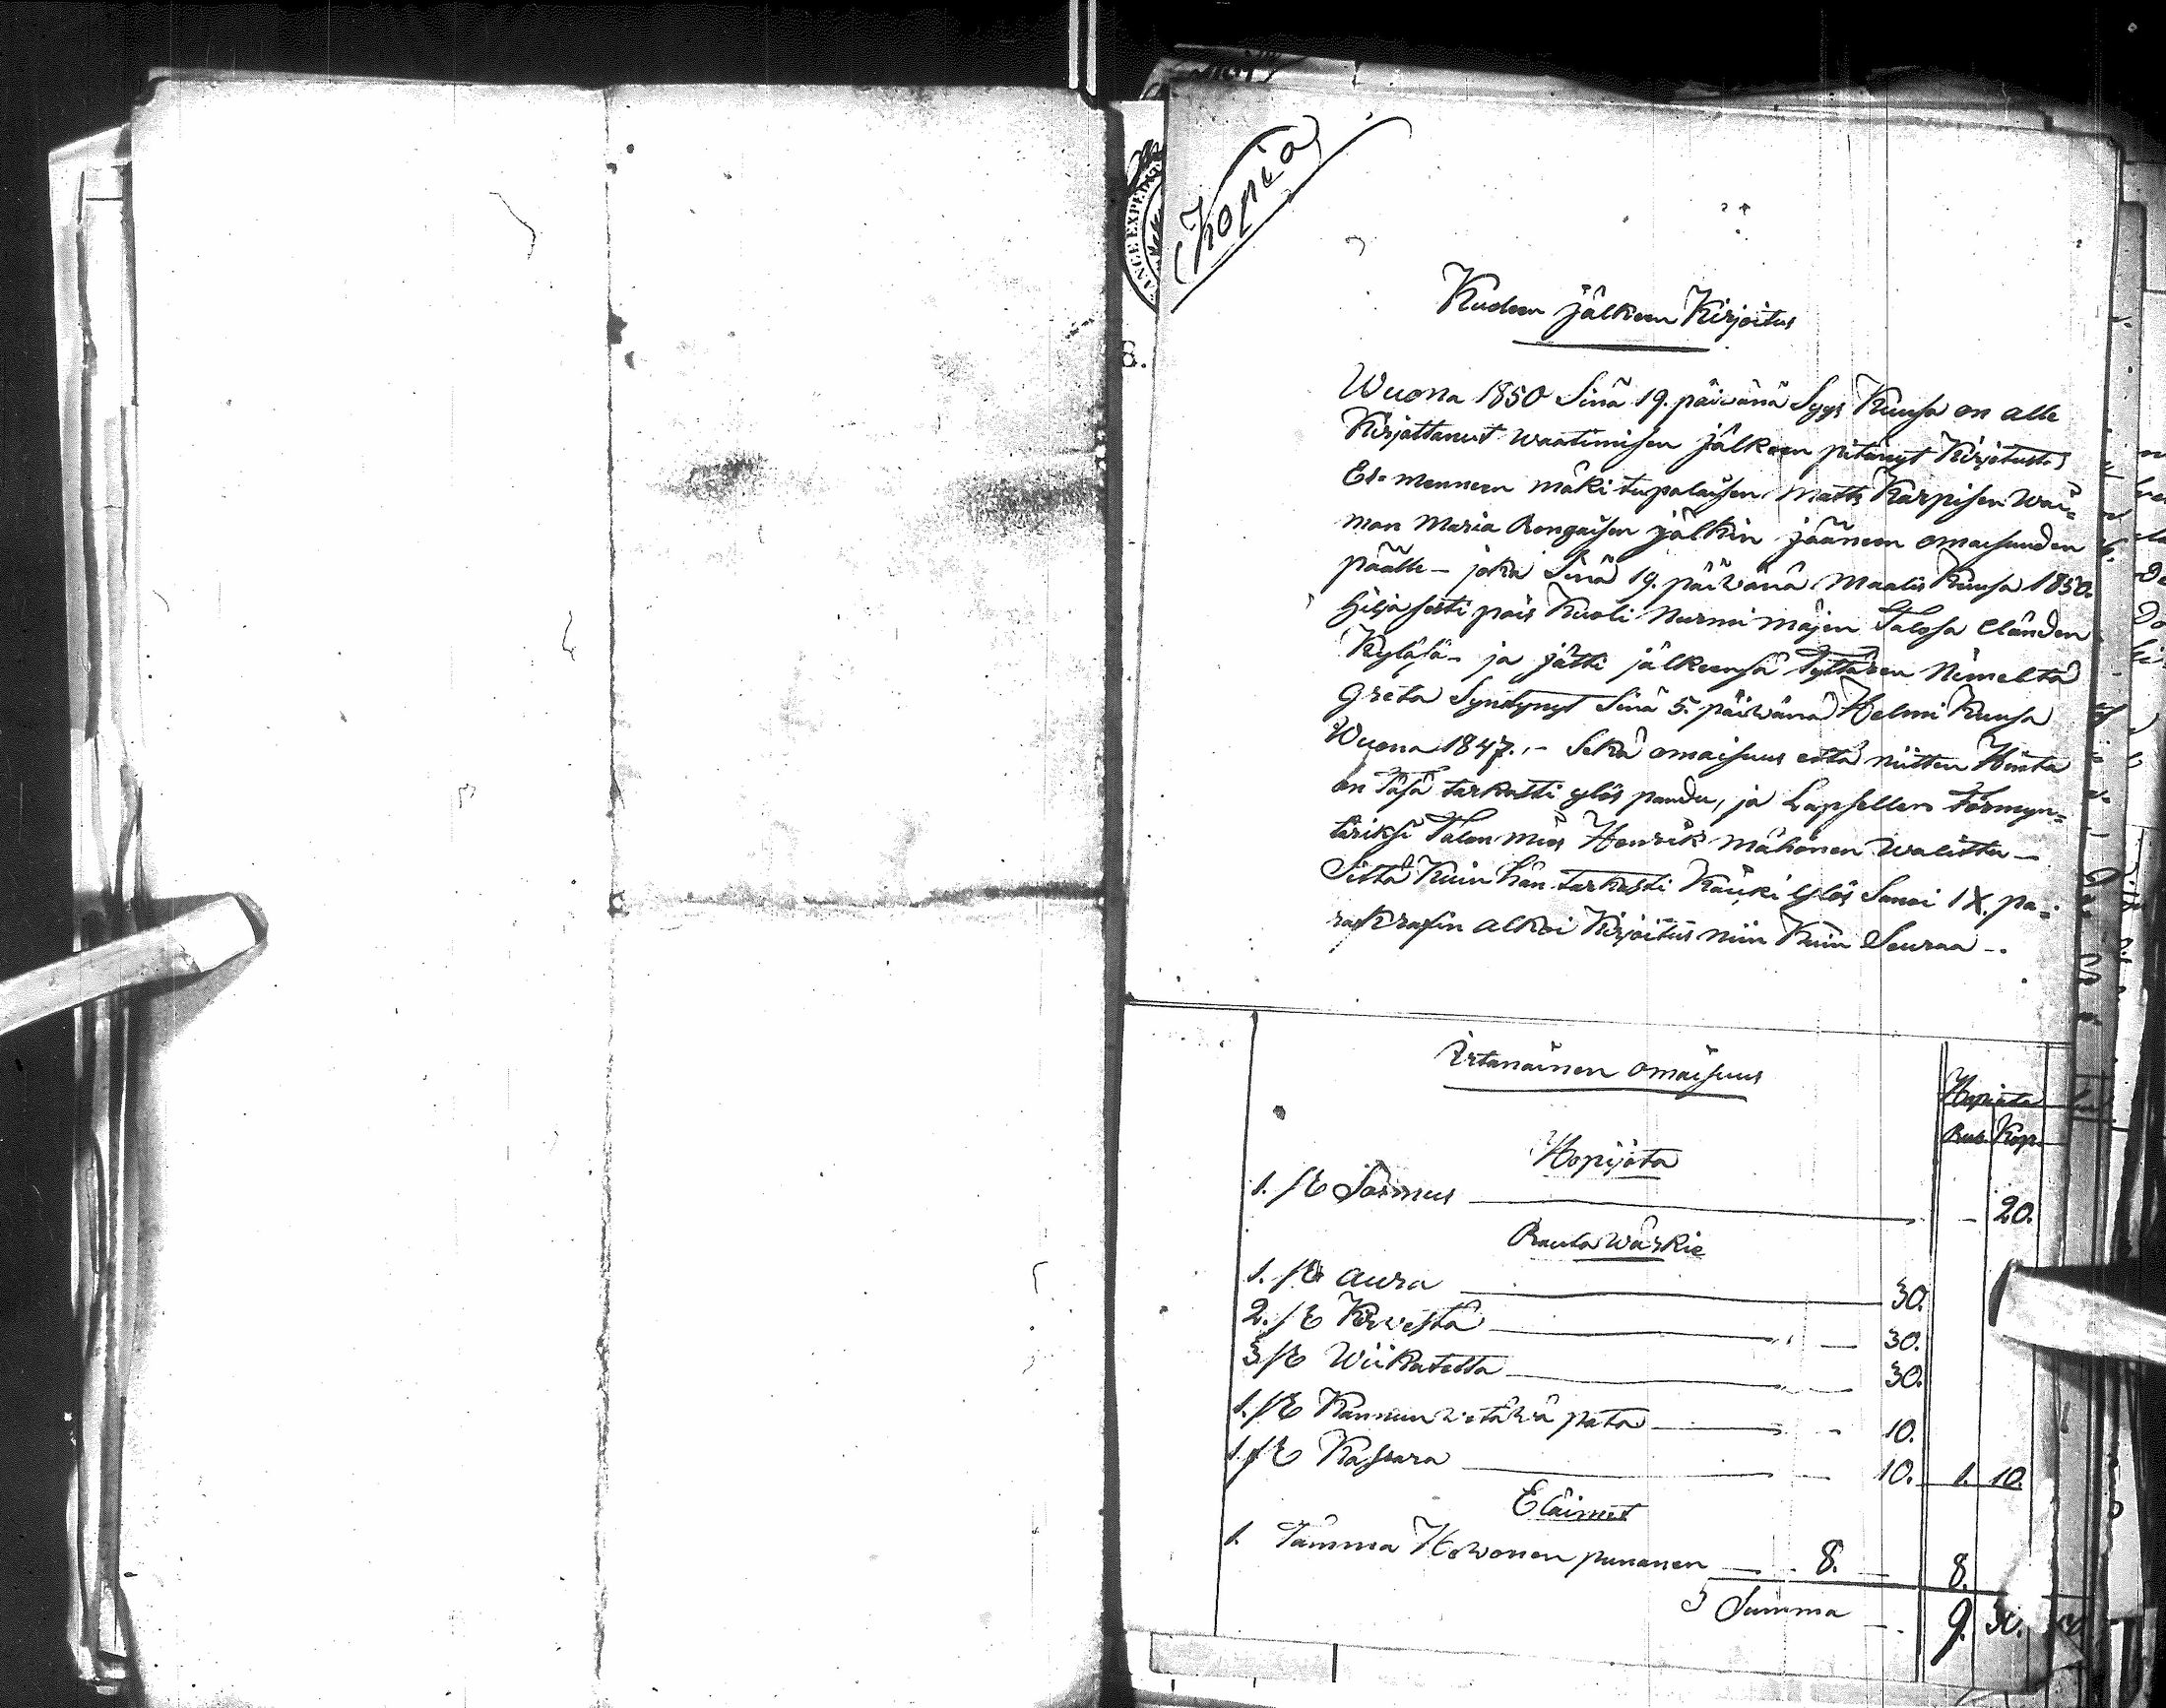 Kopia
Kudeen jälkeen Kirjoitus
Wuona 1850 Sinä 19. päiwänä Syys Kuusa on alle
Kirjottanut waatimisen jälkeen pitänyt Kirjotusta
Ede mennen mäki tupalaisen Matts Karpisen wai=
mon Maria Rongaisen jälkin jäänen omaisuuden
päälle – joka Sinä 19. päiwänä Maalis Kuusa 1850.
hiljasesti pois Kuoli Nurmi mäjen Talosa
Kyläsä – ja jätti jälkeensä Tyttären Nimeltä
Greta Syndynyt Sinä 5. päiwänä Helmi Kuusa
Wuona 1847. – Sekä omaisuus että niitten Hinta
on Täsä tarkasti ylös pandu, ja Lapsellen Förmyn=
täriksi Talon mies Henrik Mähönen walittu –
Sitta Kuin hän tarkasti Kaiki ylös Sanoi IX. pa=
rakrafin alkoi Kirjoitus niin Kuin Seuraa –.
Irtanainen omaisuus
Hopiata
Rub. Kop.
Hopijata
1. /E Sormus – 20.
Rauta wärkiä
1. /E Aura 30.
2. /E Kirvestä – 30.
3 /E Wiikatetta – 30.
1. /E Kannun vetävä pata – 10.
1. /E Kassara – 10. 1. 10.
Eläimet
1. Tamma Hewonen punanen – 8. – 8.
Summa – 9. 30.